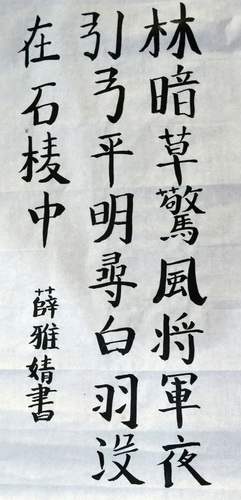 林暗草驚風将軍夜
引弓平明尋白羽没
在石棱中
薛雅婧書